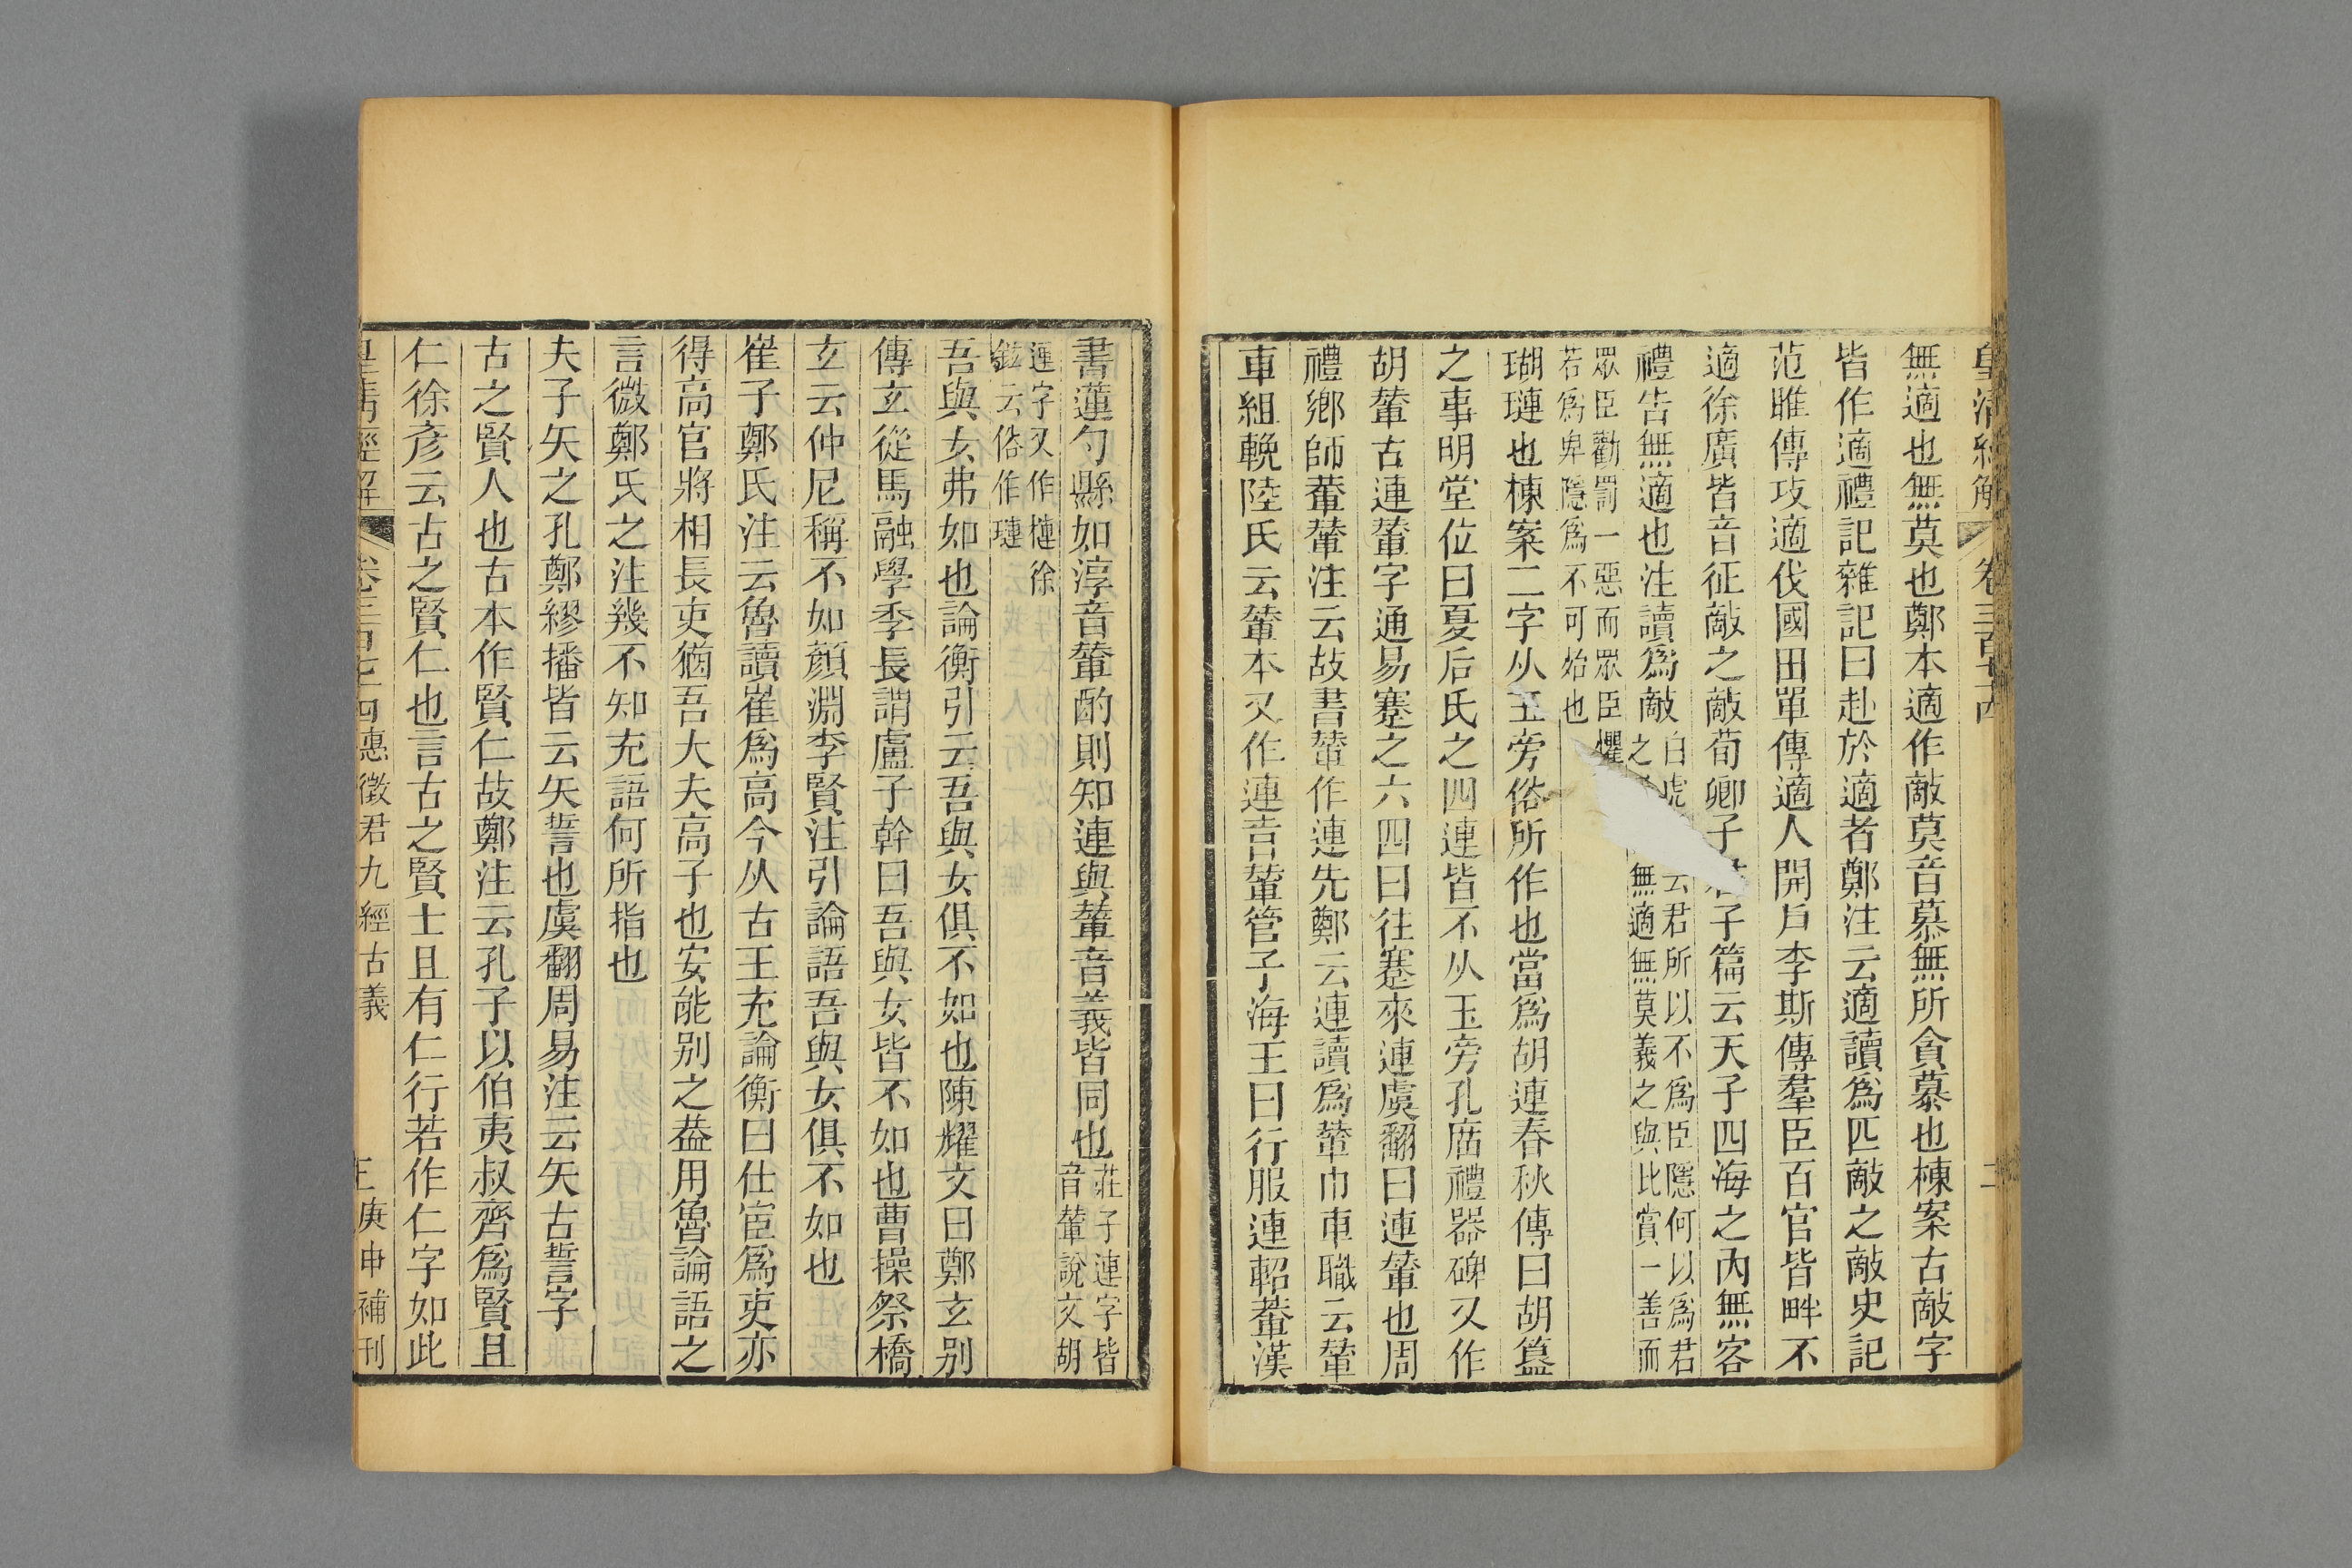 皇清經解 卷三百七十四 二
無適也無莫也鄭本適作敵莫音慕無所貪慕也棟案古敵字
皆作適禮記雜記曰赴於適者鄭注云適讀爲匹敵之敵史記
范雎傳攻適伐國田單傳適人開戶李斯傳羣臣百官皆畔不
適徐廣皆音征敵之敵荀卿子君子篇云天子四海之內無客
禮告無適也注讀爲敵
白虎云君所以不爲臣隱何以爲君
之無適無莫義之與比賞一善而
眾臣勸罰一惡而眾臣懼
若爲卑隱爲不可殆也
瑚璉也棟案二字从玉旁俗所作也當爲胡連春秋傳曰胡簋
之事明堂位曰夏后氏之四連皆不从玉旁孔庿禮器碑又作
胡輦古連輦字通易蹇之六四曰往蹇來連虞翻曰連輦也周
禮鄉師輂輦注云故書輦作連先鄭云連讀爲輦巾車職云輦
車組輓陸氏云輦本又作連音輦管子海王曰行服連軺輂漢
書蓮勺縣如淳音輦酌則知連與輦音義皆同也
莊子連字皆
音輦說文胡
連字又作槤徐
鉉云俗作璉
吾與女弗如也論衡引云吾與女俱不如也陳耀文曰鄭玄別
傳玄從馬融學季長謂盧子幹曰吾與女皆不如也曹操祭橋
玄云仲尼稱不如顏淵李賢注引論語吾與女俱不如也
崔子鄭氏注云魯讀崔爲高今从古王充論衡曰仕宦爲吏亦
得高官將相長吏猶吾大夫高子也安能別之葢用魯論語之
言微鄭氏之注幾不知充語何所指也
夫子矢之孔鄭繆播皆云矢誓也虞翻周易注云矢古誓字
古之賢人也古本作賢仁故鄭注云孔子以伯夷叔齊爲賢且
仁徐彥云古之賢仁也言古之賢士且有仁行若作仁字如此
皇清經解 卷三百七十四 惠徵君九經古義 三 庚申補刊